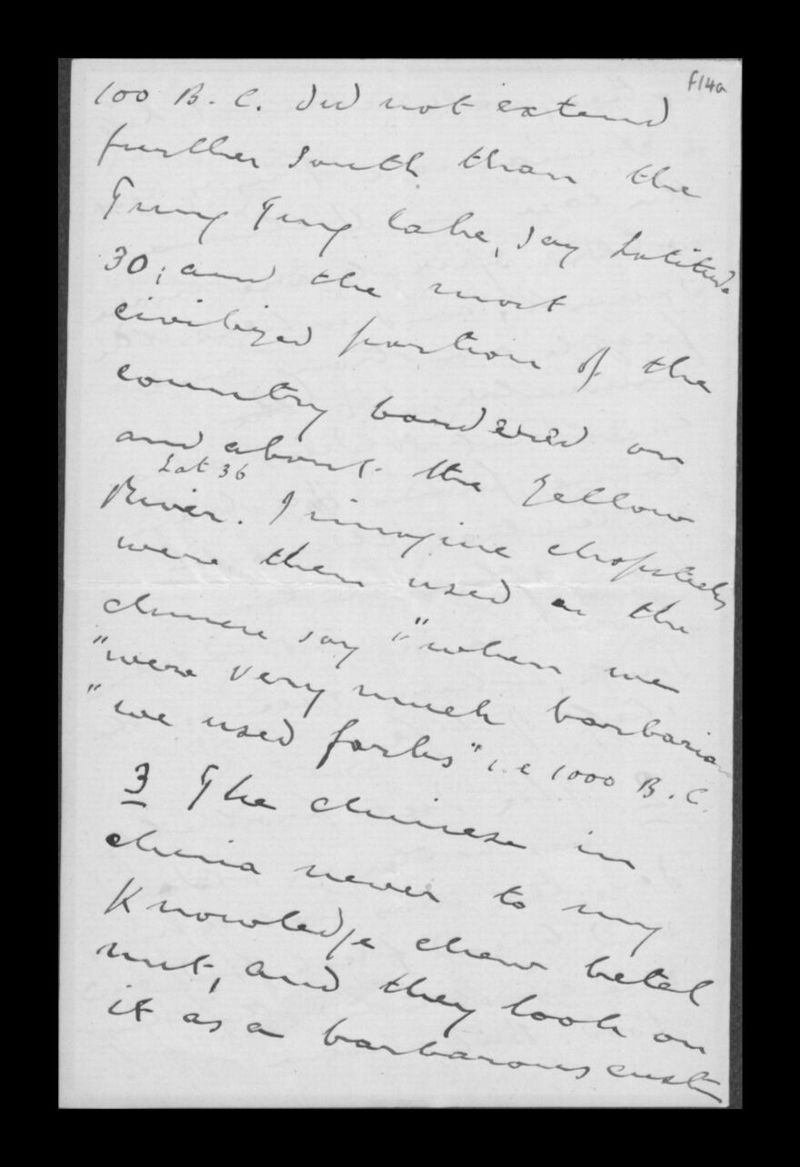 f14a
100 B.C. did not extend
further South than the
Tung Ting lake, say Latitude
30; and the most
civilized portion of the
country bordered on
and about the Yellow
Lat 36
River. I imagine chopsticks
were then used as the
chinese say "when we
"were very much barbarian
"we used forks" i.e 1000 B.C.
3 The chinese in
china never to my
Knowledge chew betel
nut, and they look on
it as a barbarous cust